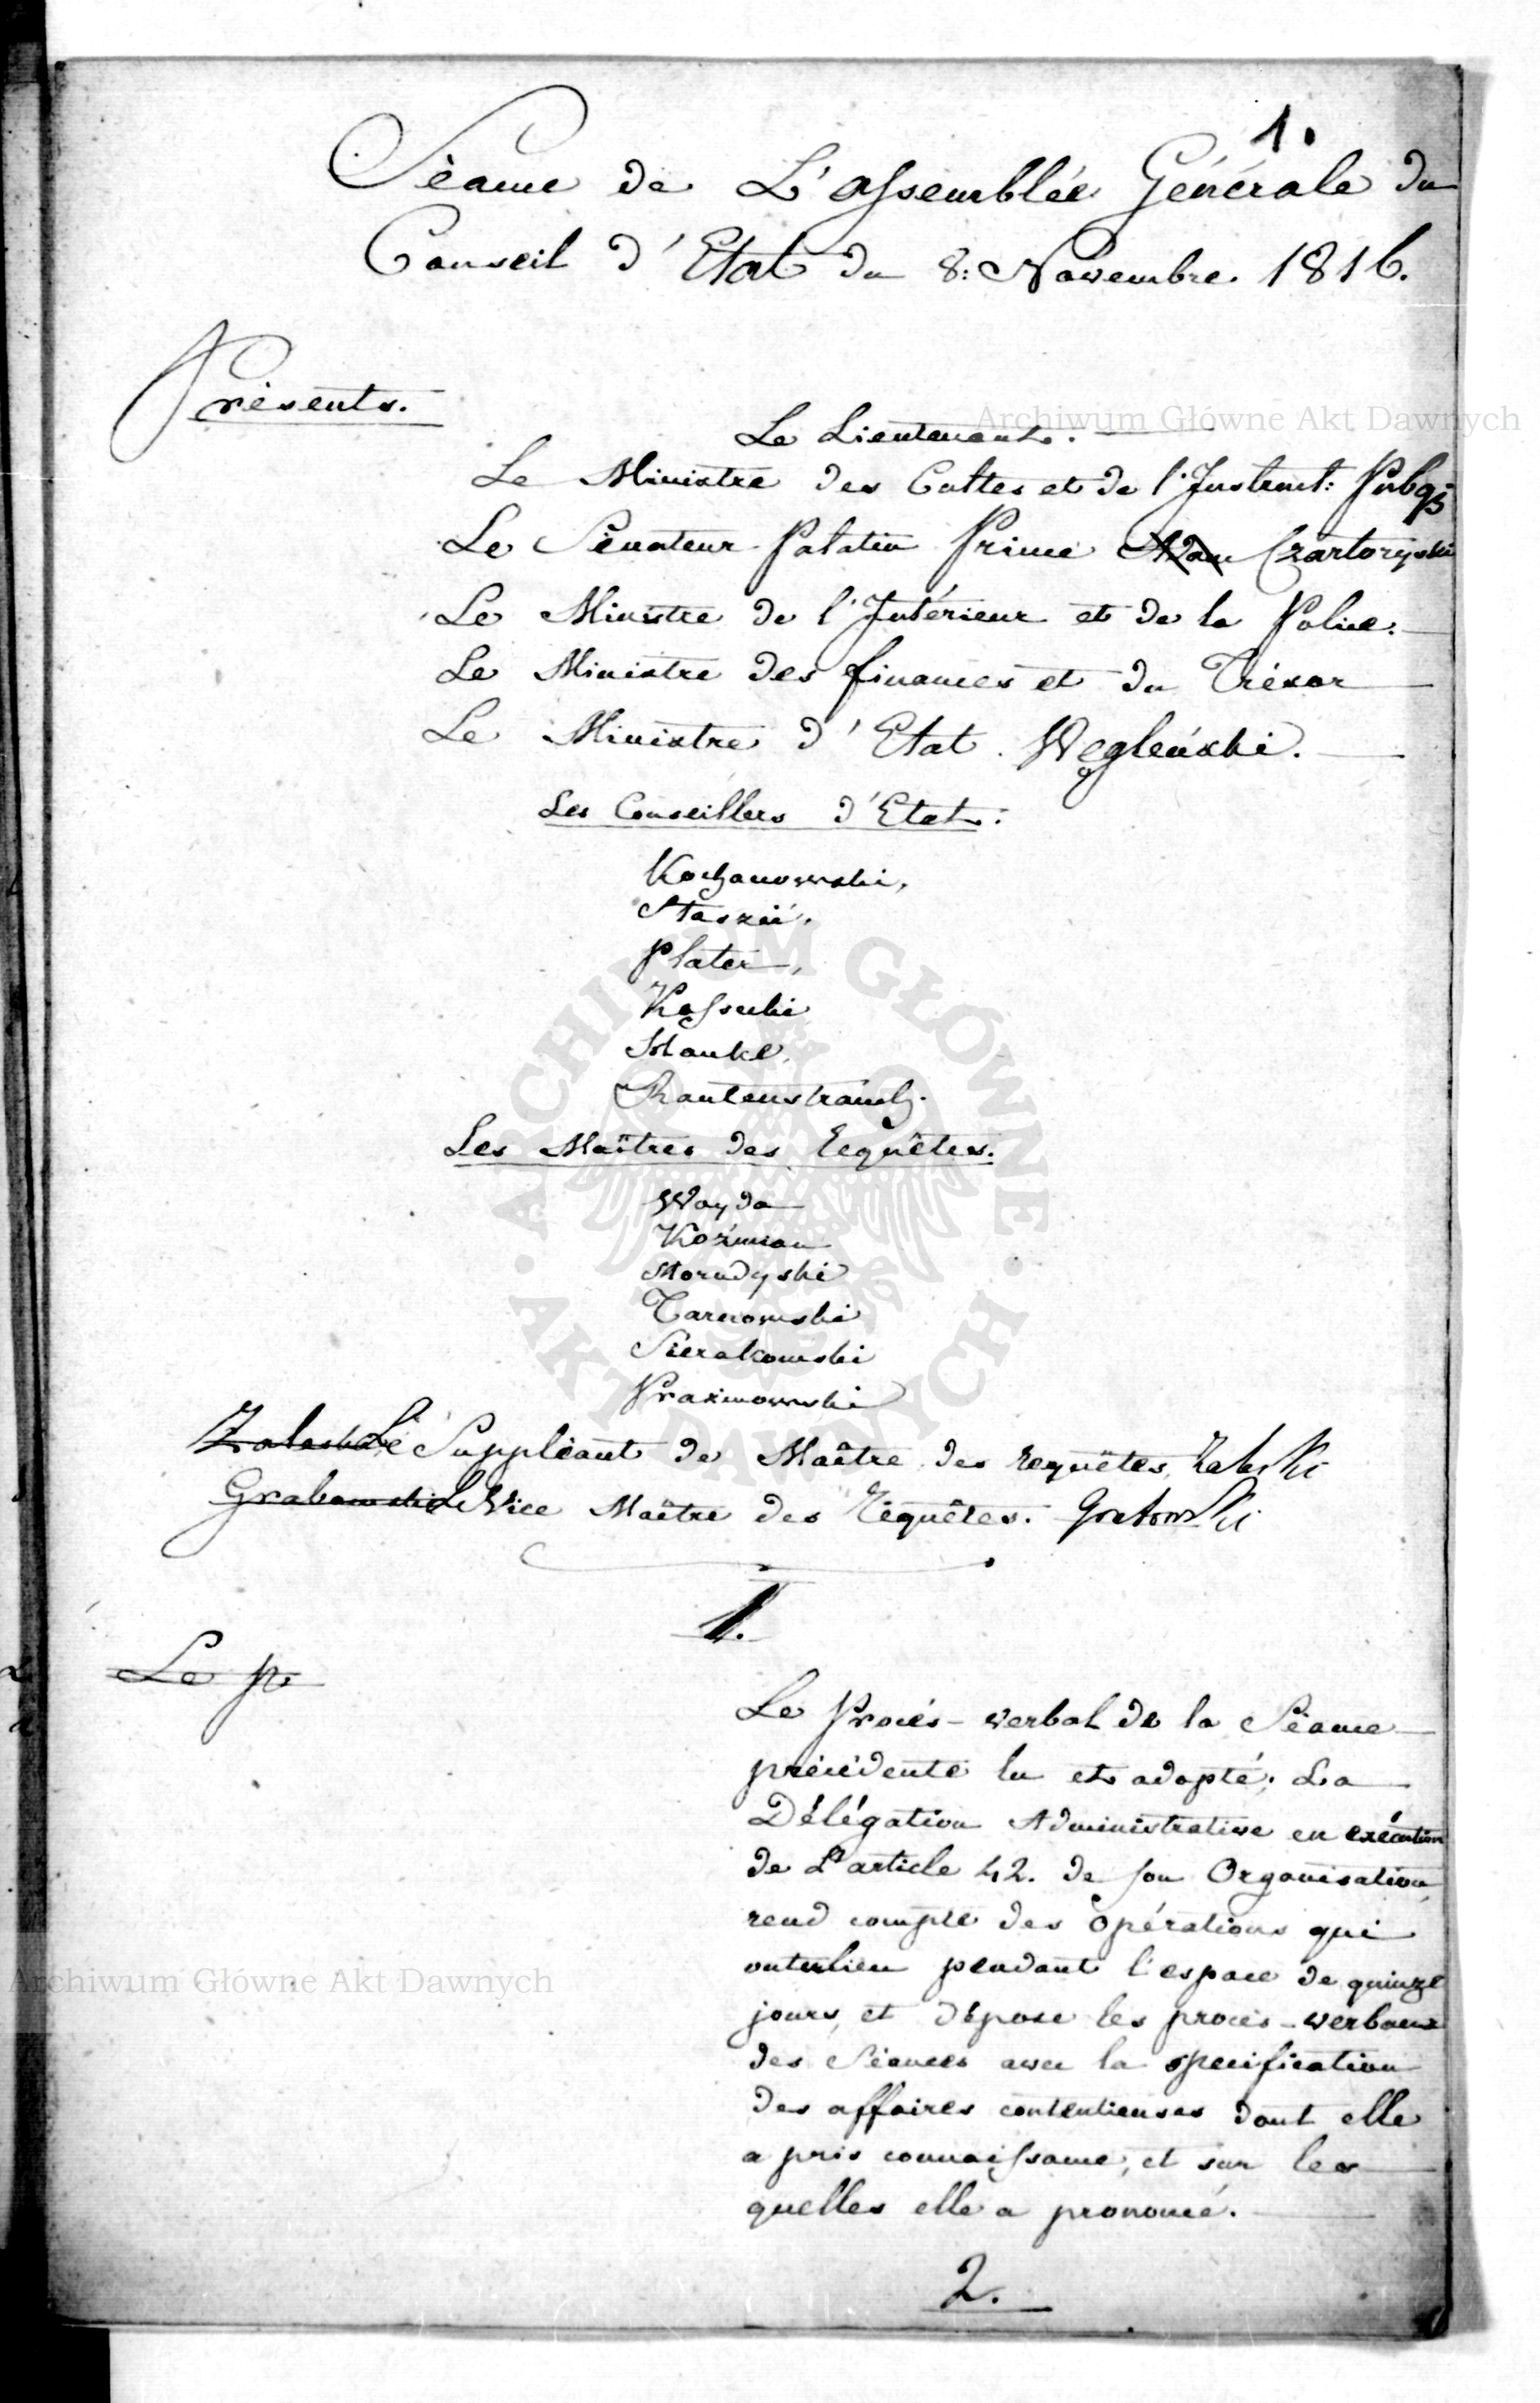 1.
Séance de L'assemblée Générale du
Conseil d'Etat du 8: Novembre 1816.
Présents.
Archiwum Główne Akt Dawnych
Le Lieutenant.
Le Ministre des Cultes et de l'Instruct: Pubq;
Le Sénateur Palatin Prince Adam Czartoryski
Le Ministre de l'Intérieur et de la Police.
Le Ministre des finances et du Trésor
Le Ministre d'Etat Węgleński.
Les Conseillers d'Etat:
Kochanowski,
Staszic,
Plater,
Kossecki
Hauke,
Rautenstrauch.
Les Maîtres des requêtes.
Woyda
Koźmian
Morudyski
Tarnowski
Sierakowski
Prażmowski
Zaleski Le Suppléant de Maître des requêtes, Zaleski
Grabowski Le Vice Maître des requêtes. Grabowski
1.
Le p.
Le Procés-verbal de la Séance
précédente lu et adopté; La
Délégation Administrative en exécution
de L'article 42. de son Organisation,
rend compte des opérations qui
ont eu lieu pendant l'espace de quinze
Archiwum Główne Akt Dawnych
jours, et dépose les procès-verbaux
des Séances avec la spécification
des affaires contentieuses dont elle
a pris connaissance, et sur les
quelles elle a prononcé.
2.
ARCHIWUM GŁÓWNE
AKT DAWNYCH